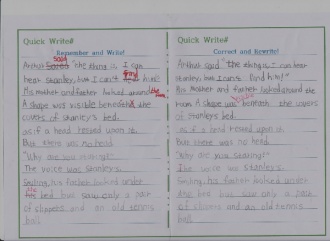 Quick Write#
Remember and Write!
Arthur said "the thing is, I can
hear Stanley, but I can't find him!
His mother and father looked around the room.
A shape was visible beneath the
covers of Stanley's bed.
as if a head rested upon it.
But, there was no head.
"Why are you staring?"
The voice was Stanley's.
Smiling, his father looked under
the bed but saw only a pair
of slippers and an old tennis
ball.
Quick Write#
Correct and Rewrite!
Arthur said "the thing is, I can hear
Stanley, but I can't find him!"
His mother and father looked around the
room A shape was beneath the covers
of Stanley's bed.
as if a head rested upon it.
But there was no head
"Why are you staring?"
The voice was Stanley's.
Smiling, his father looked under
the bed but saw only a pair
of slippers and an old tennis
ball